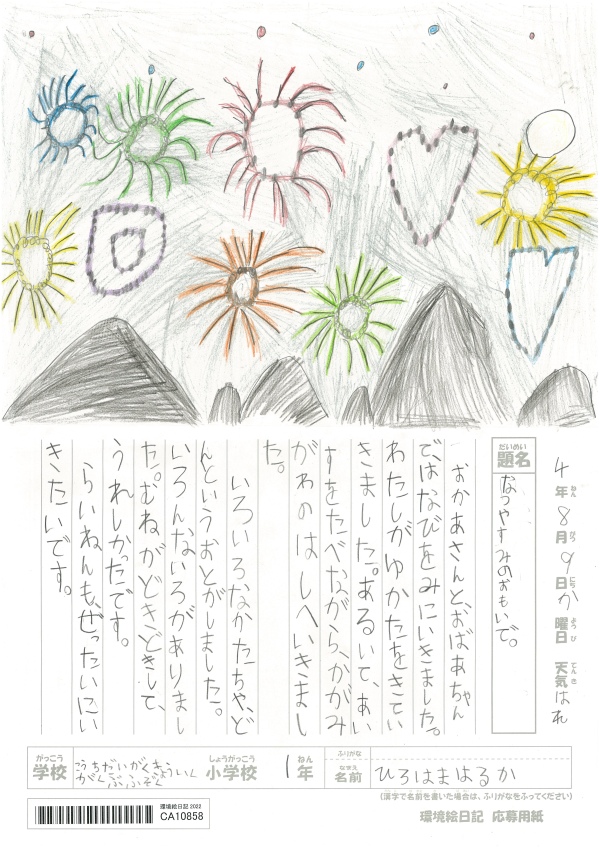 4年ねん8月がつ9日にちか曜日ようび 天気てんき はれ
題名だいめい
なつやすみのおもいで。
おかあさんとおばあちゃん
で、はなびをみにいきました。
わたしがゆかたをきてい
きました。あるいて、あい
すをたべながら、かがみ
がわのはしへいきまし
た。
いろいろなかたちや、ど
んというおとがしました。
いろんないろがありまし
た。むねがどきどきして、
うれしかったです。
らいねんも、ぜったいにい
きたいです。
がっこう
学校
こうちだいがくきょういく
がくぶふぞく
しょうがっこう
小学校
1
ねん
年
ふりがな
なまえ
名前
ひろはまはるか
(漢字で名前を書いた場合は、ふりがなをふってください)
環境絵日記 2022
CA10858
環境絵日記 応募用紙